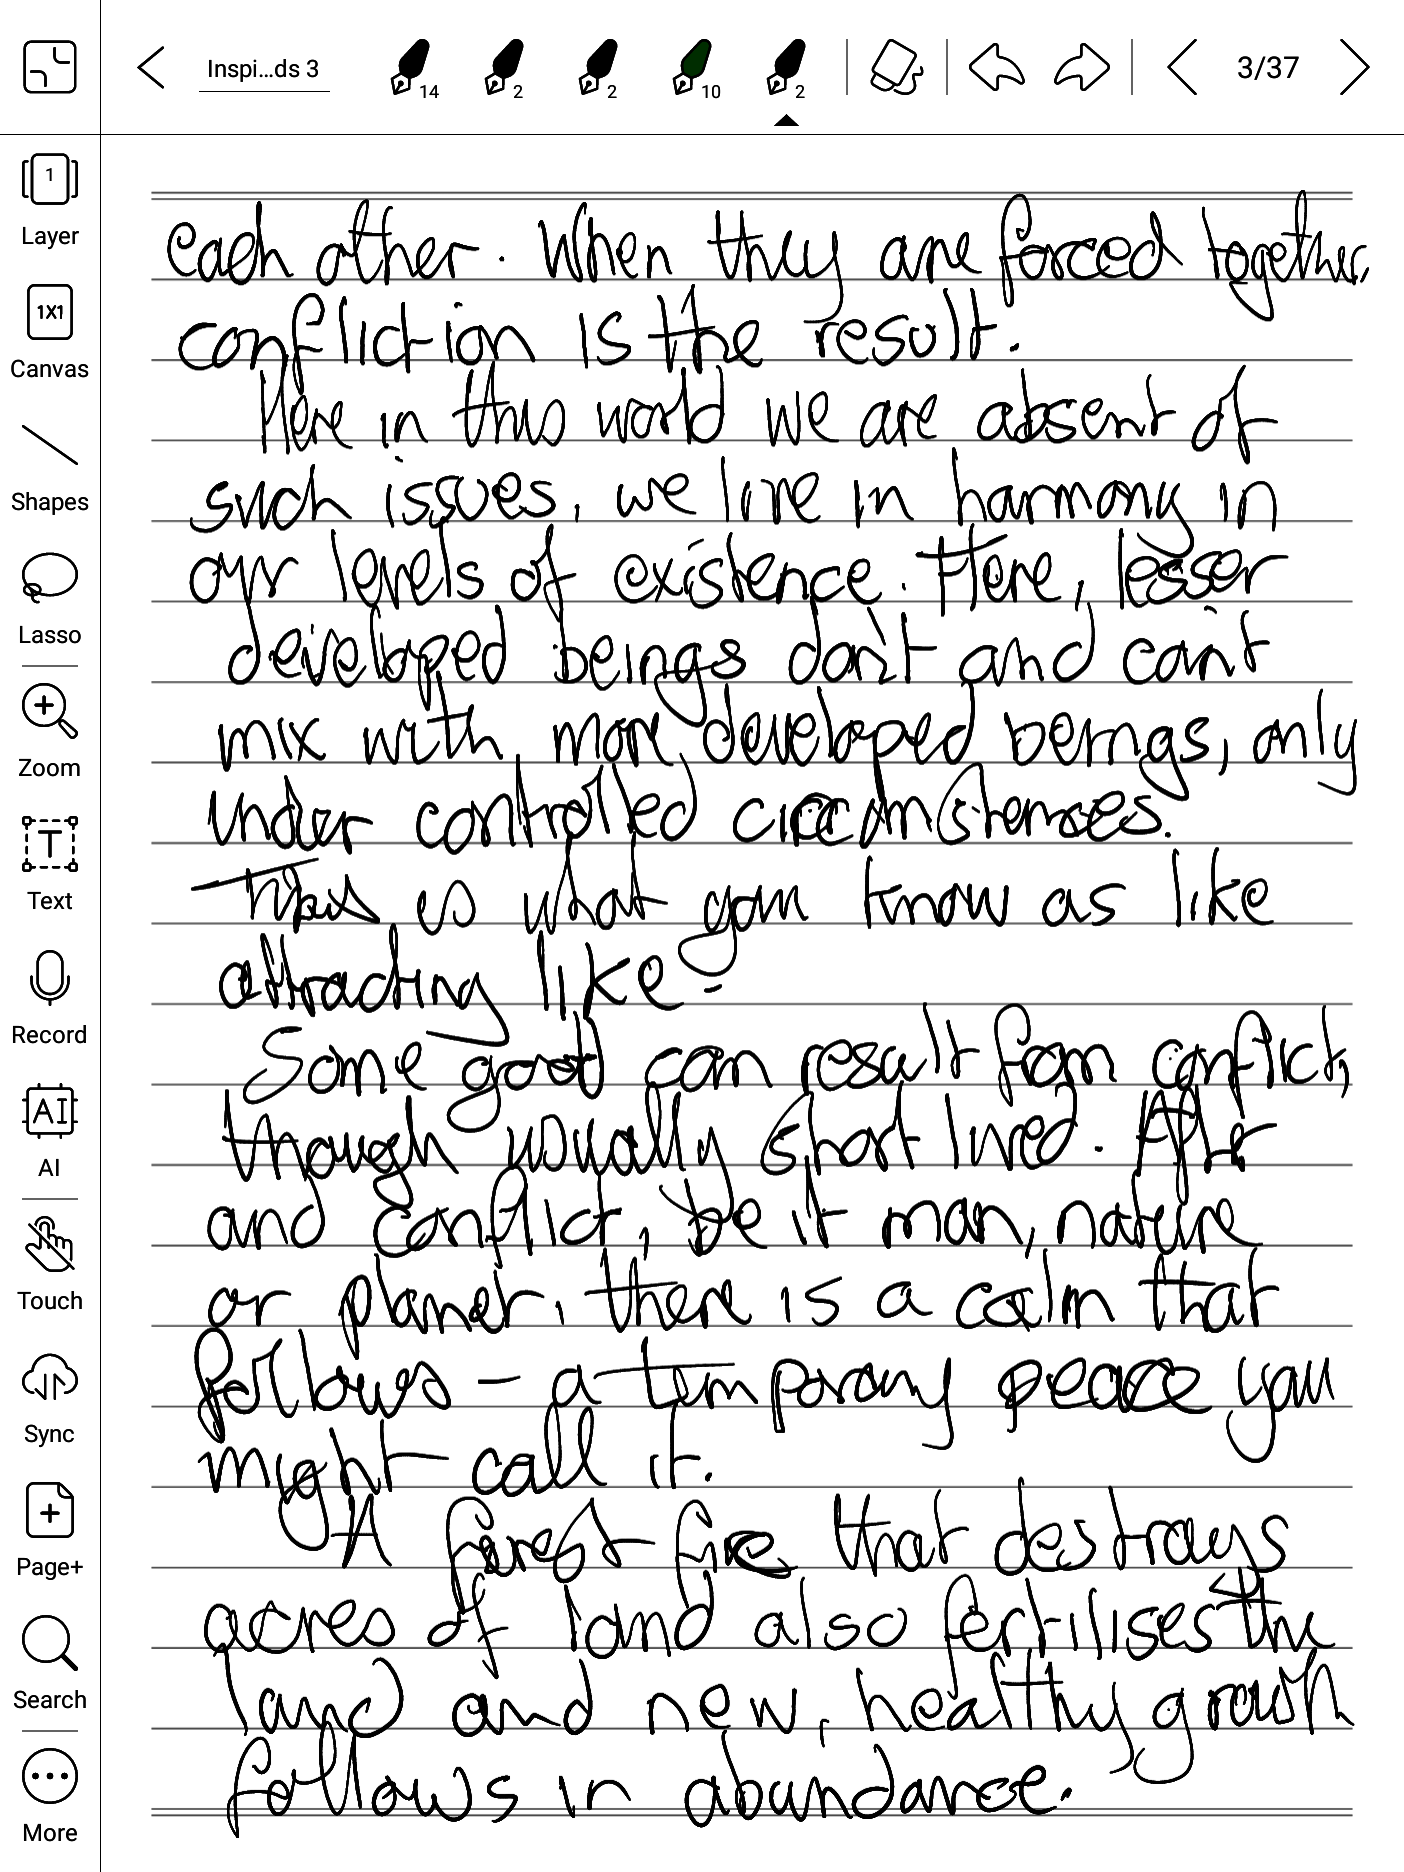 Inspi...ds 3
14
2
2
10
2
3/37
1
Layer
1X1
Canvas
Shapes
Lasso
Zoom
T
Text
Record
AI
AI
Touch
Sync
Page+
Search
More
each other. When they are forced together,
confliction is the result.
Here in this world we are absent of
such issues, we live in harmony in
our levels of existence. Here, lesser
developed beings don't and can't
mix with more developed beings, only
under controlled circumstances.
This is what you know as like
attracting like.
Some good can result from conflict,
though usually short lived. After
and conflict, be it man, nature
or planet, there is a calm that
follows - a temporary peace you
might call it.
A forest fire that destroys
acres of land also fertilises the
land and new, healthy growth
follows in abundance.